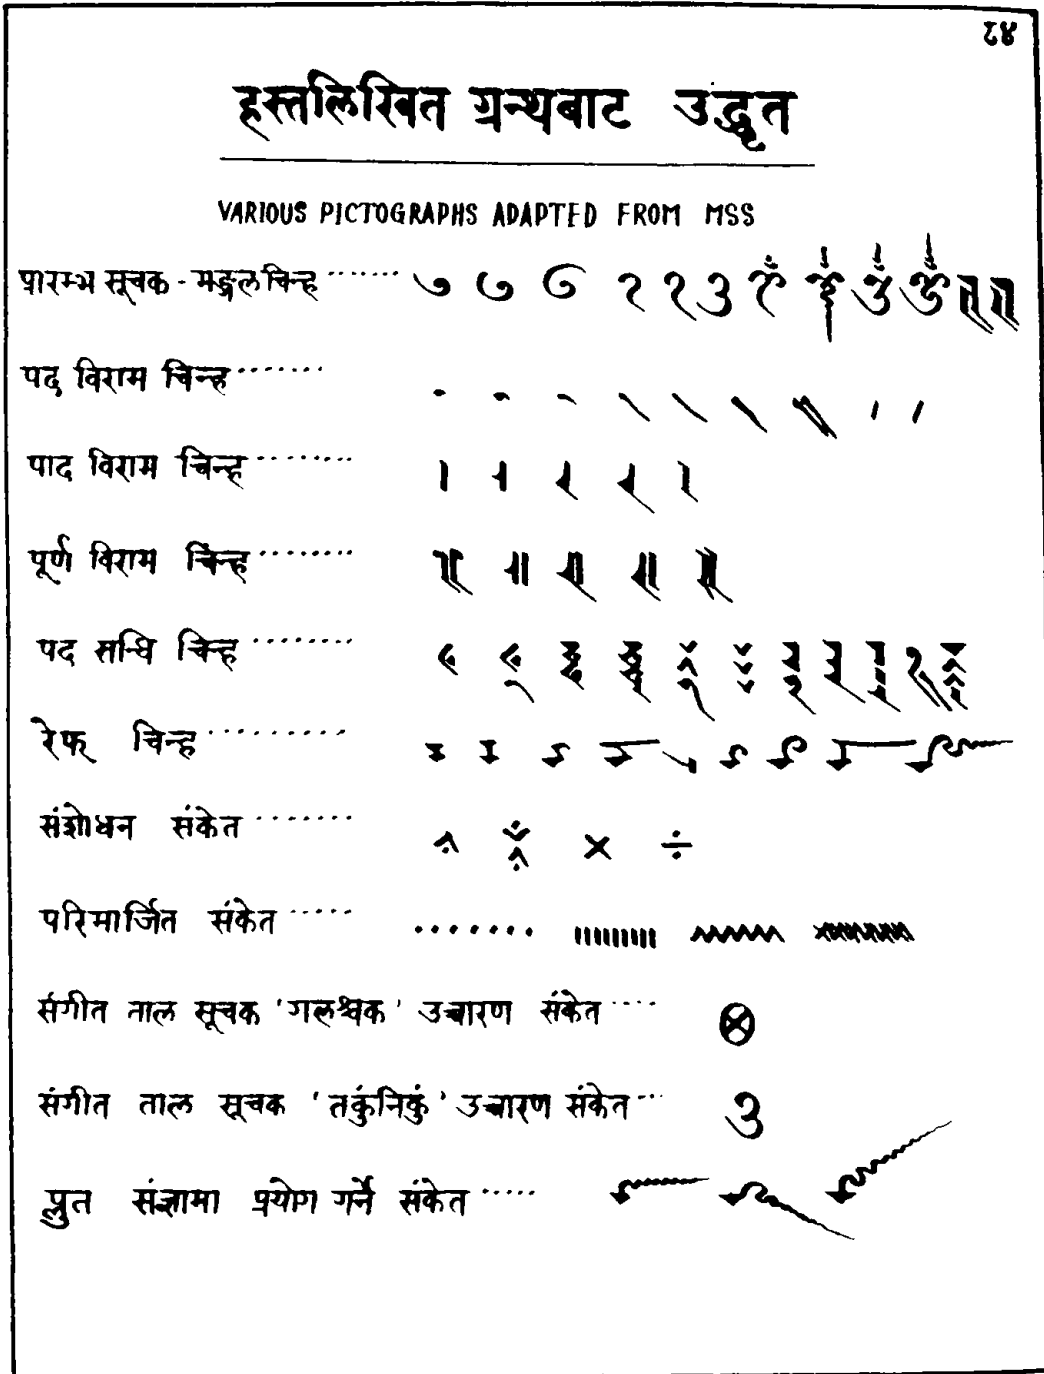 ८४
हस्तलिखित ग्रन्थबाट उद्धृत
VARIOUS PICTOGRAPHS ADAPTED FROM MSS
प्रारम्भ सूचक - मङ्गलचिन्ह ·······
पद विराम चिन्ह ·······
पाद विराम चिन्ह ········
पूर्ण विराम चिन्ह ········
पद सन्धि चिन्ह ········
रेफ् चिन्ह ·········
संशोधन संकेत ······· × ÷
परिमार्जित संकेत ·····
संगीत ताल सूचक 'गलश्चक' उच्चारण संकेत ····
संगीत ताल सूचक 'तकुंनिकुं' उच्चारण संकेत ···
प्लुत संज्ञामा प्रयोग गर्ने संकेत ·····